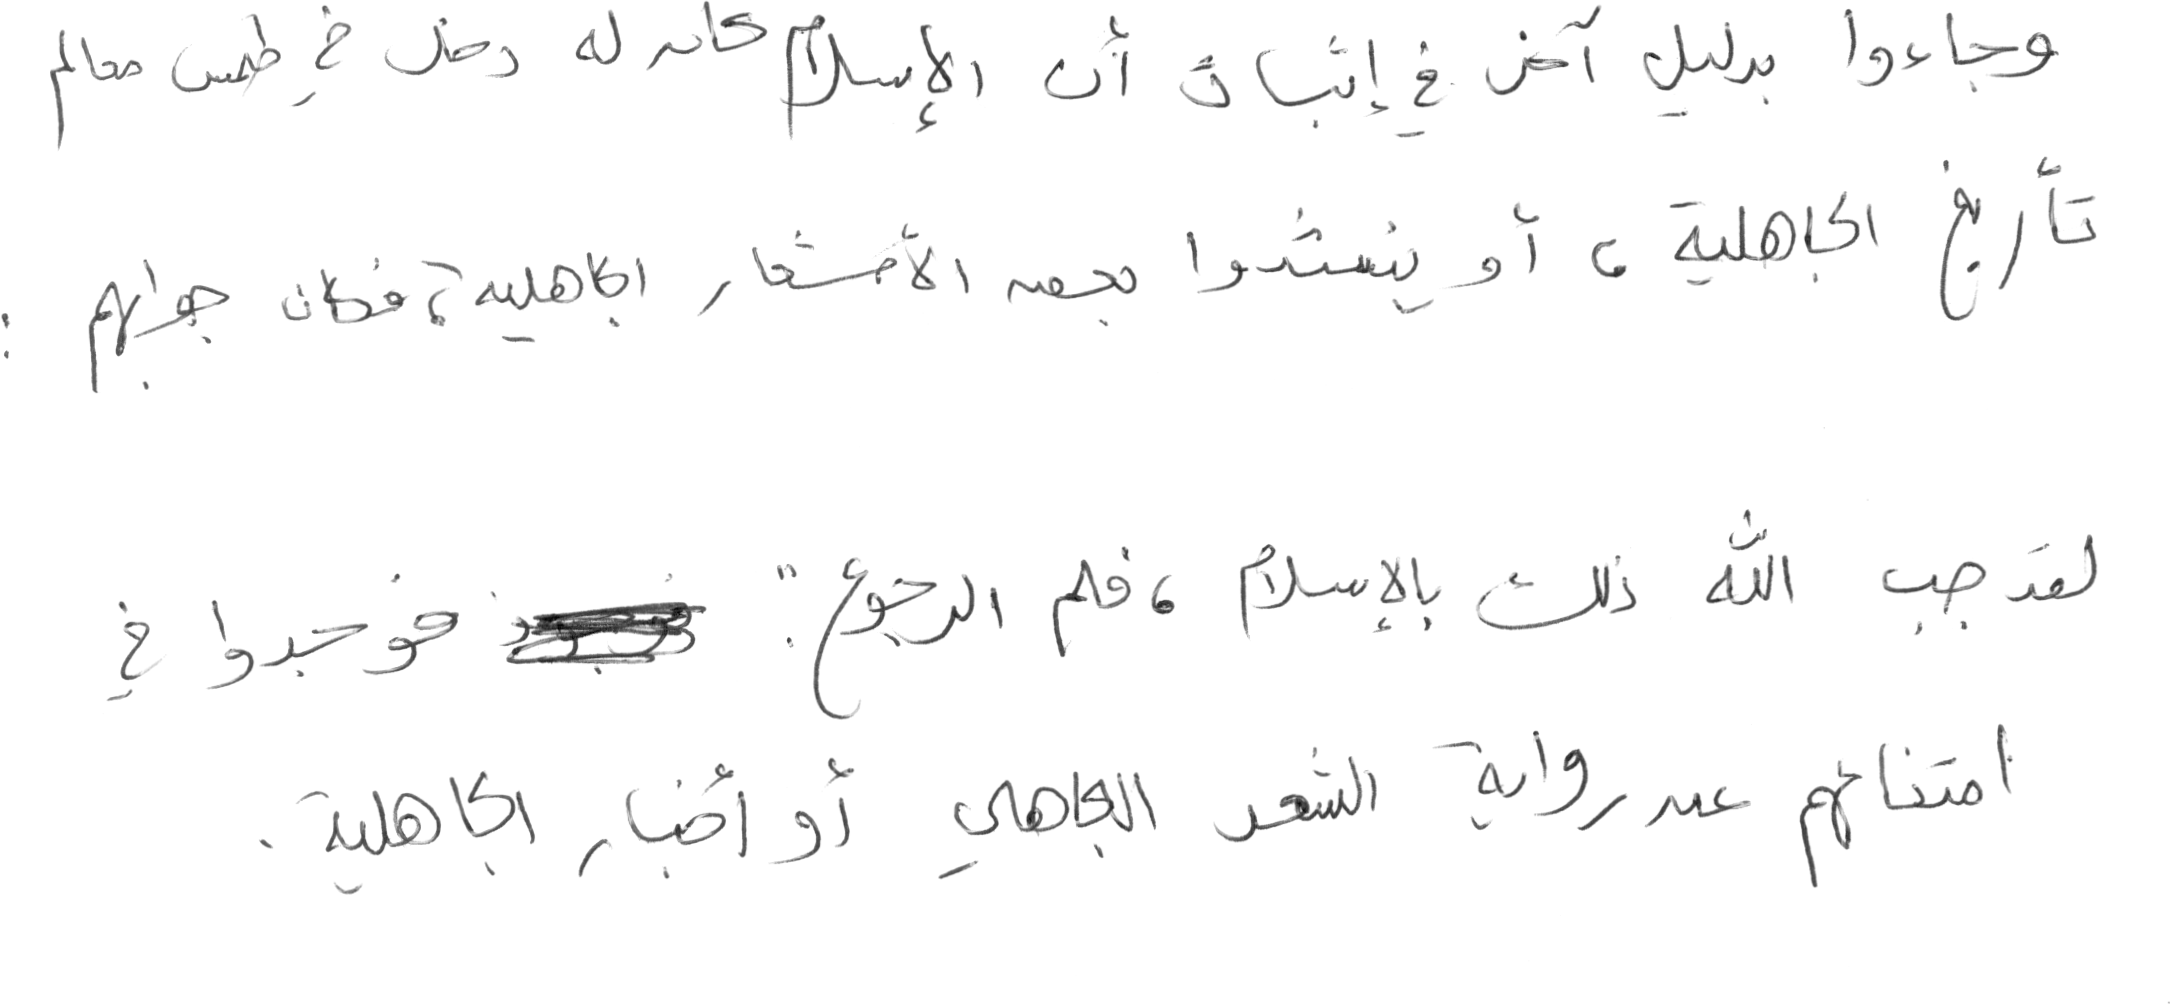 وجاءوا بدليل آخر في إثبات أن الإسلام كان له دخل في طمس معالم
تأريخ الجاهلية، أو ينشدوا بعض الأشعار الجاهلية، فكان جوابهم :
لقد جب الله ذلك بالإسلام، فلم الرجوع؟" فوجدوا في
امتناعهم عن رواية الشعر الجاهلي أو أخبار الجاهلية.